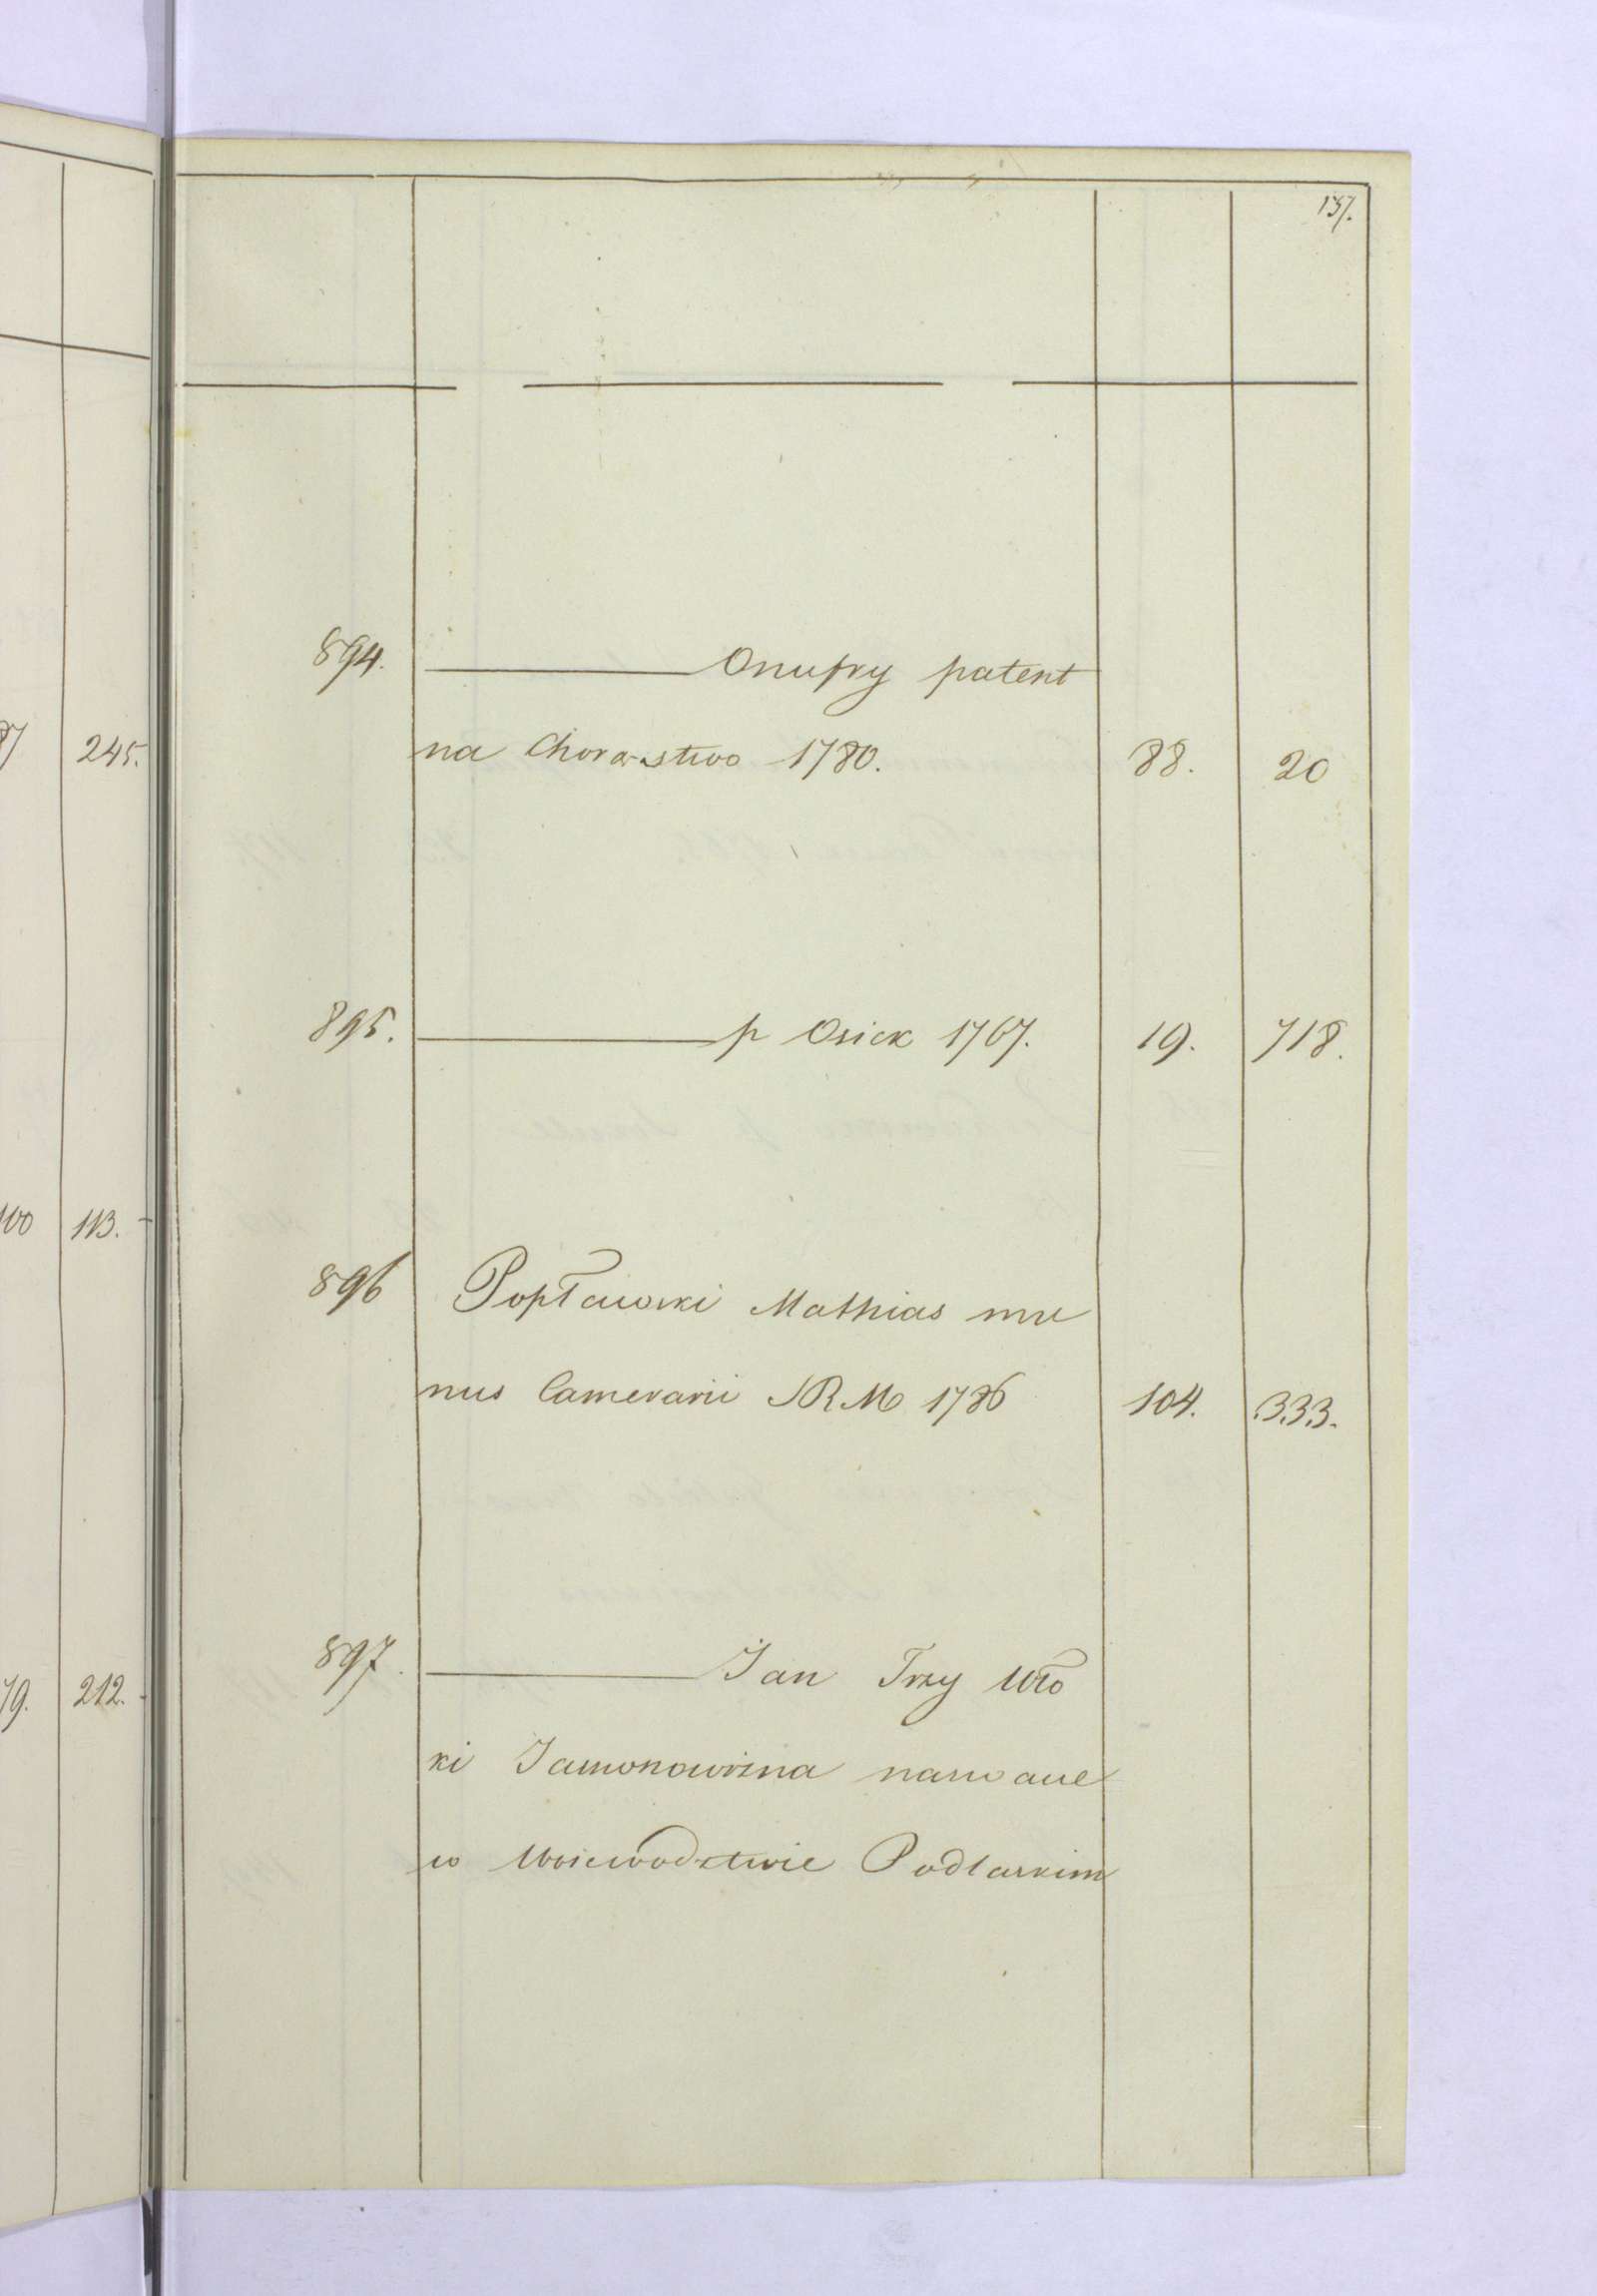 157.
894. Onufry patent
na Chorastwo 1780. 88. 20
895. p Osiek 1767. 19. 718.
896 Popławski Mathias mu
nus Camerarii SRM 1786 104. 333.
897. Jan Trzy Wło
ki nazwane
w Woiewodztwie Podlaskim
87 245.
100 113.
79. 212.